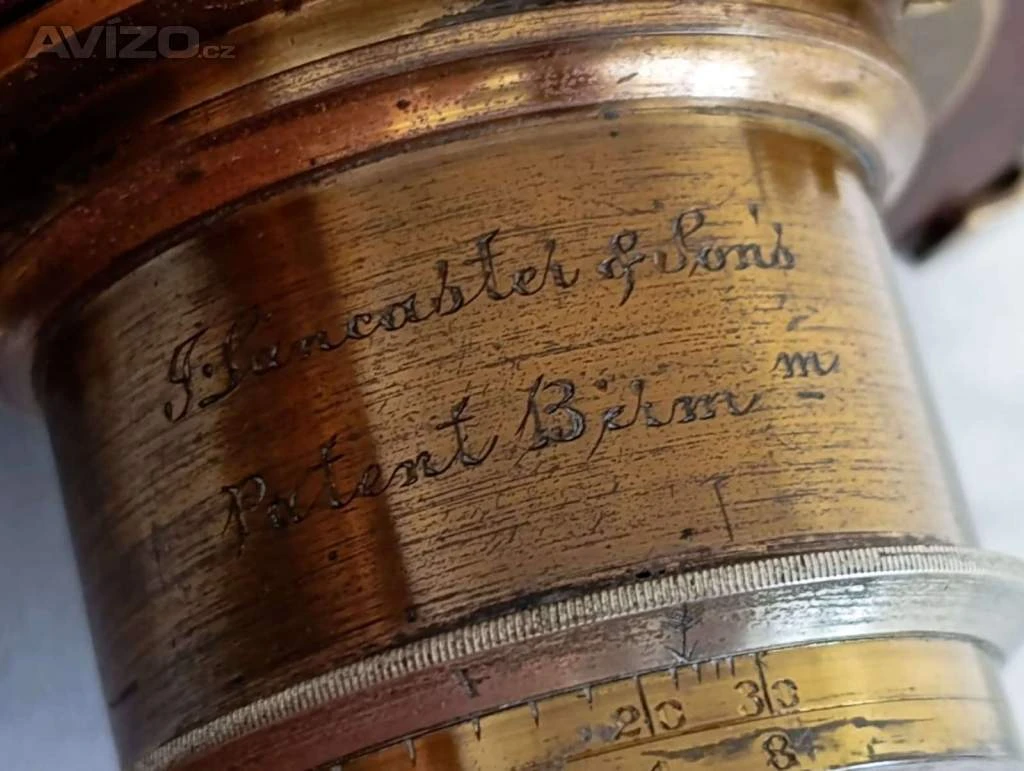 AVÍZO.cz
J. Lancaster & Son's
Patent Birm m
20 30
8